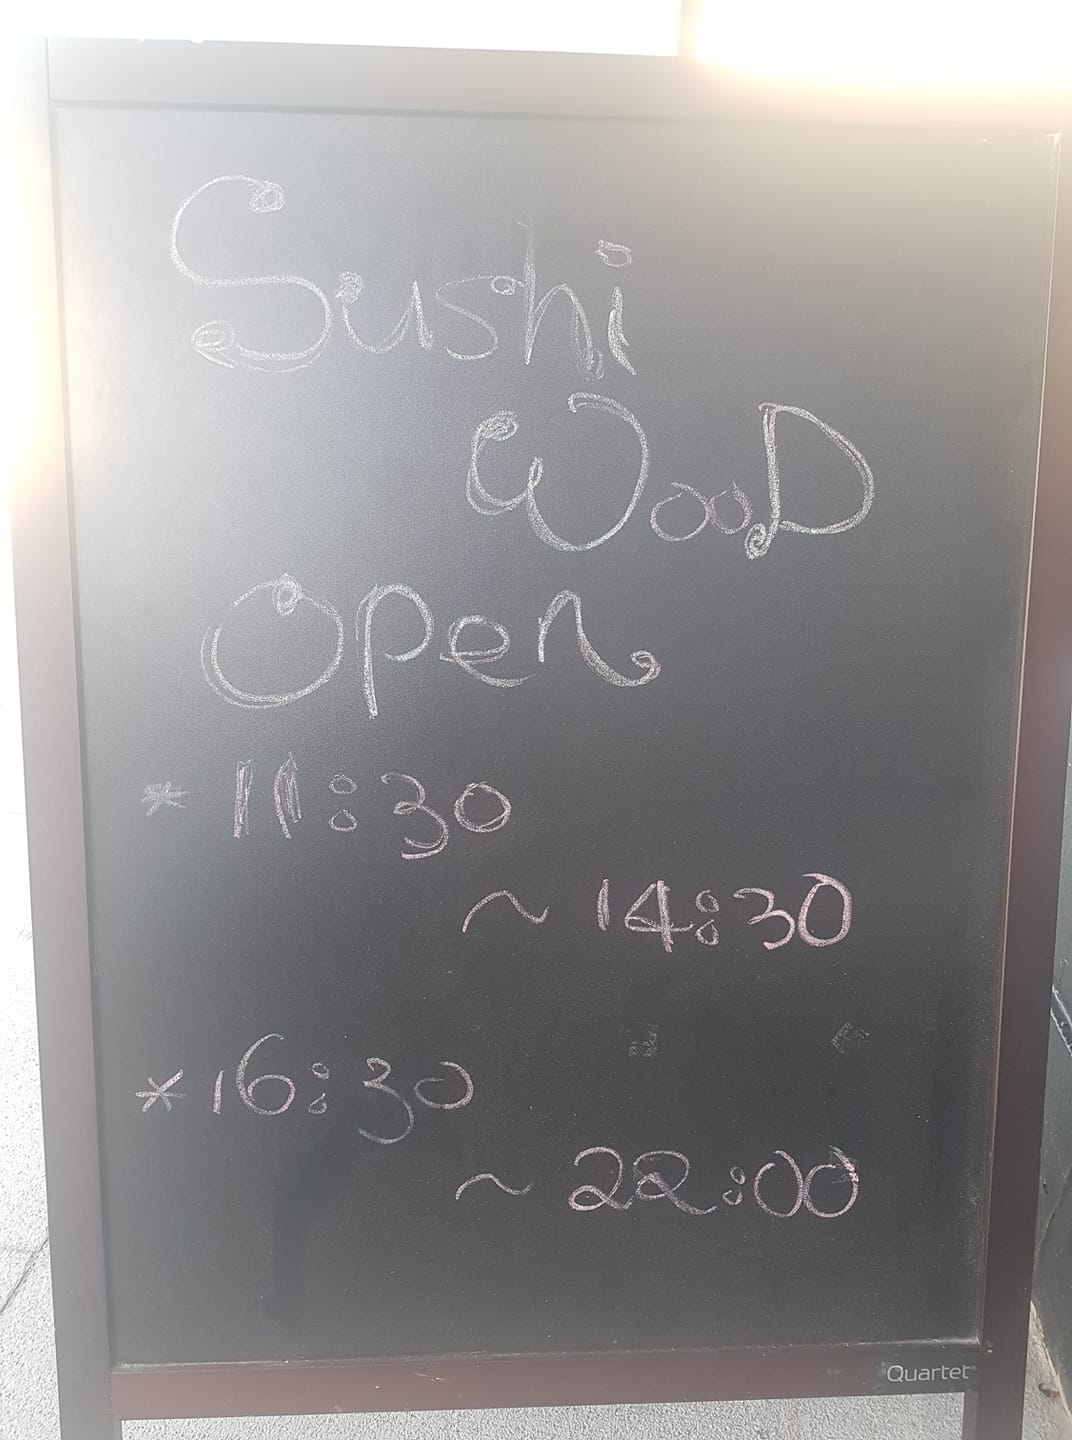 Sushi
WooD
Open
* 11:30
~ 14:30
* 16:30
~ 22:00
Quartet